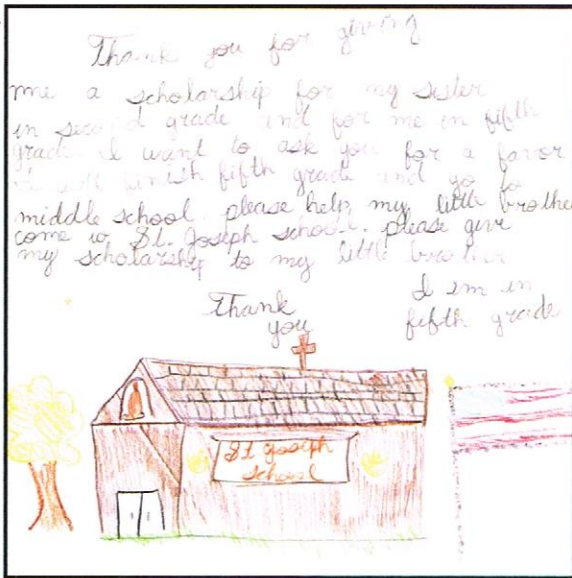 Thank you for giving
me a scholarship for my sister
in second grade and for me in fifth
grade. I want to ask you for a favor
finish fifth grade and go to
middle school. please help my little brothe
come to St. Joseph school. please give
my scholarship to my little brother
Thank
you
I em in
fifth grade
St Joseph
School